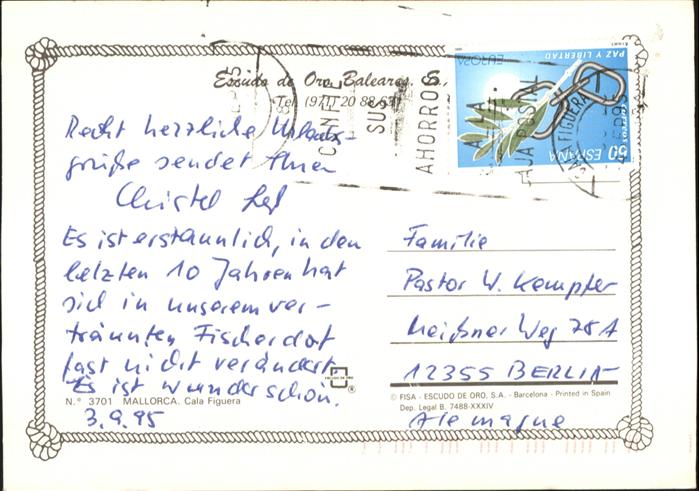 Escudo de Oro Baleares, S.
Tel. (971) 20 88
Recht herzliche Urlaubs-
grüße sendet Ihnen
Christel
Es ist erstaunlich, in den
letzten 10 Jahren hat
sich in unserem ver-
träumten Fischerdorf
fast nicht verändert.
Es ist wunderschön.
N.º 3701 MALLORCA. Cala Figuera
3.9.95
ESCUDO DE ORO
®
EUROPA
PAZ Y LIBERTAD
correos
50 ESPAÑA
AHORROS
CAJA POSTAL
CALA FIGUERA
Familie
Pastor W. Kempfer
Meißner Weg 78A
12355 BERLIN
Alemagne
© FISA - ESCUDO DE ORO, S.A. - Barcelona - Printed in Spain
Dep. Legal B. 7488-XXXIV